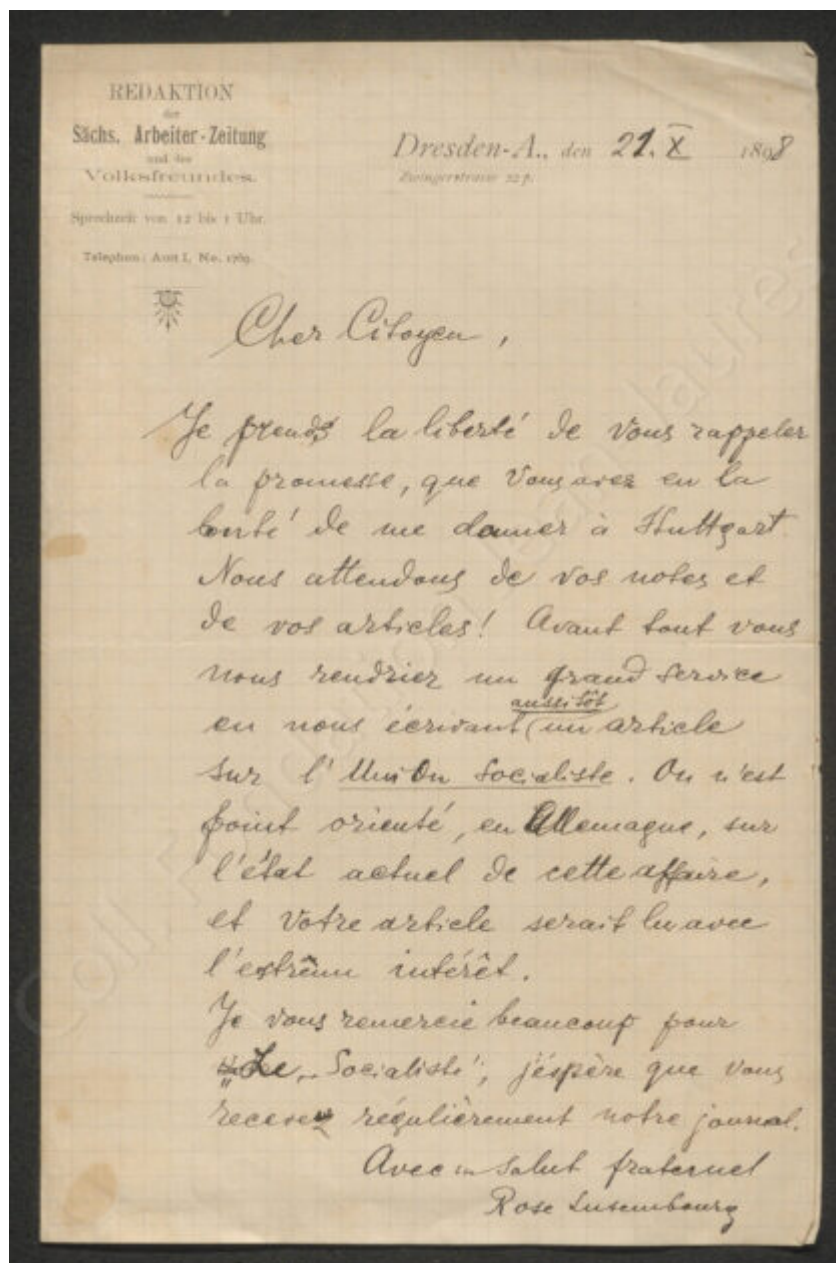 REDAKTION
der
Sächs. Arbeiter-Zeitung
und des
Volksfreundes.
Sprechzeit von 12 bis 1 Uhr.
Telephon: Amt I, No. 1769.
Dresden-A., den 21. X 1898
Zwingerstrasse 22 p.
Cher Citoyen,
Je prends la liberté de vous rappeler
la promesse, que vous avez eu la
bonté de me donner à Stuttgart.
Nous attendons de vos notes et
de vos articles! Avant tout vous
nous rendriez un grand service
aussitôt
en nous écrivant (un article
sur l'Union Socialiste. On n'est
point orienté, en Allemagne, sur
l'état actuel de cette affaire,
et votre article serait lu avec
l'extrême intérêt.
Je vous remercie beaucoup pour
„Le Socialiste", j'éspère que vous
recevez régulièrement notre journal.
Avec un salut fraternel
Rose Luxembourg
Coll. Fondation Jean Jaurès